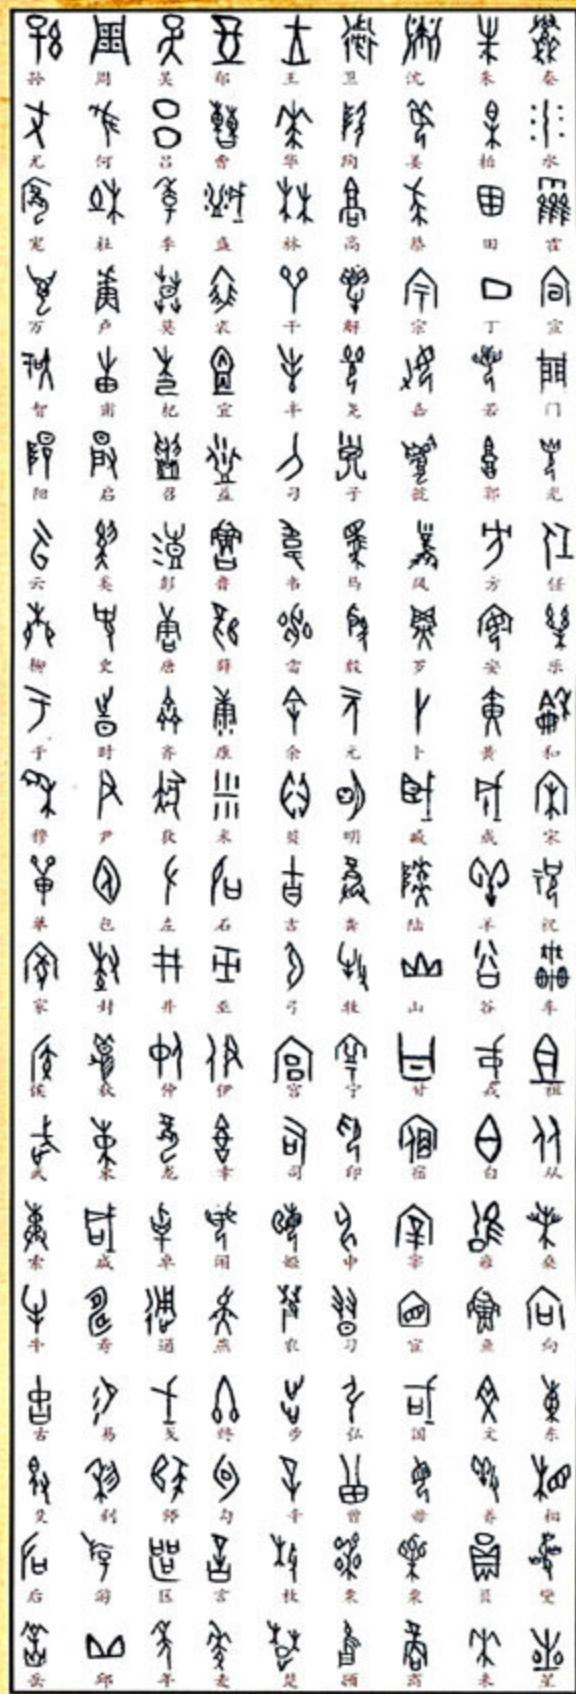 孙 周 吴 郑 王 卫 沈 朱 秦
尤 何 吕 曹 华 陶 姜 柏 水
宽 杜 季 盛 林 高 蔡 田 霍
万 卢 莫 裘 干 解 宗 丁 宣
智 甫 杞 宜 丰 尧 岳 若 门
阳 启 召 益 刁 子 郭 光
云 奚 彭 鲁 韦 马 凤 方 任
柳 史 唐 薛 雷 殷 罗 安 乐
于 时 齐 康 余 元 卜 黄 和
穆 尹 狄 米 贝 明 臧 成 宋
单 包 左 石 吉 龚 陆 羊 祝
家 封 井 巫 弓 牧 山 谷 车
侯 狄 仲 伊 宫 宁 甘 戎 祖
武 束 龙 幸 司 印 宿 白 从
索 咸 卓 蔺 姬 申 宰 雍 桑
牛 寿 通 燕 农 习 宦 鱼 向
古 易 戈 终 步 弘 国 文 东
艾 利 师 勾 辛 曾 养 相
后 游 区 言 枚 栗 员 燮
岳 邱 年 麦 楚 酒 商 来 星